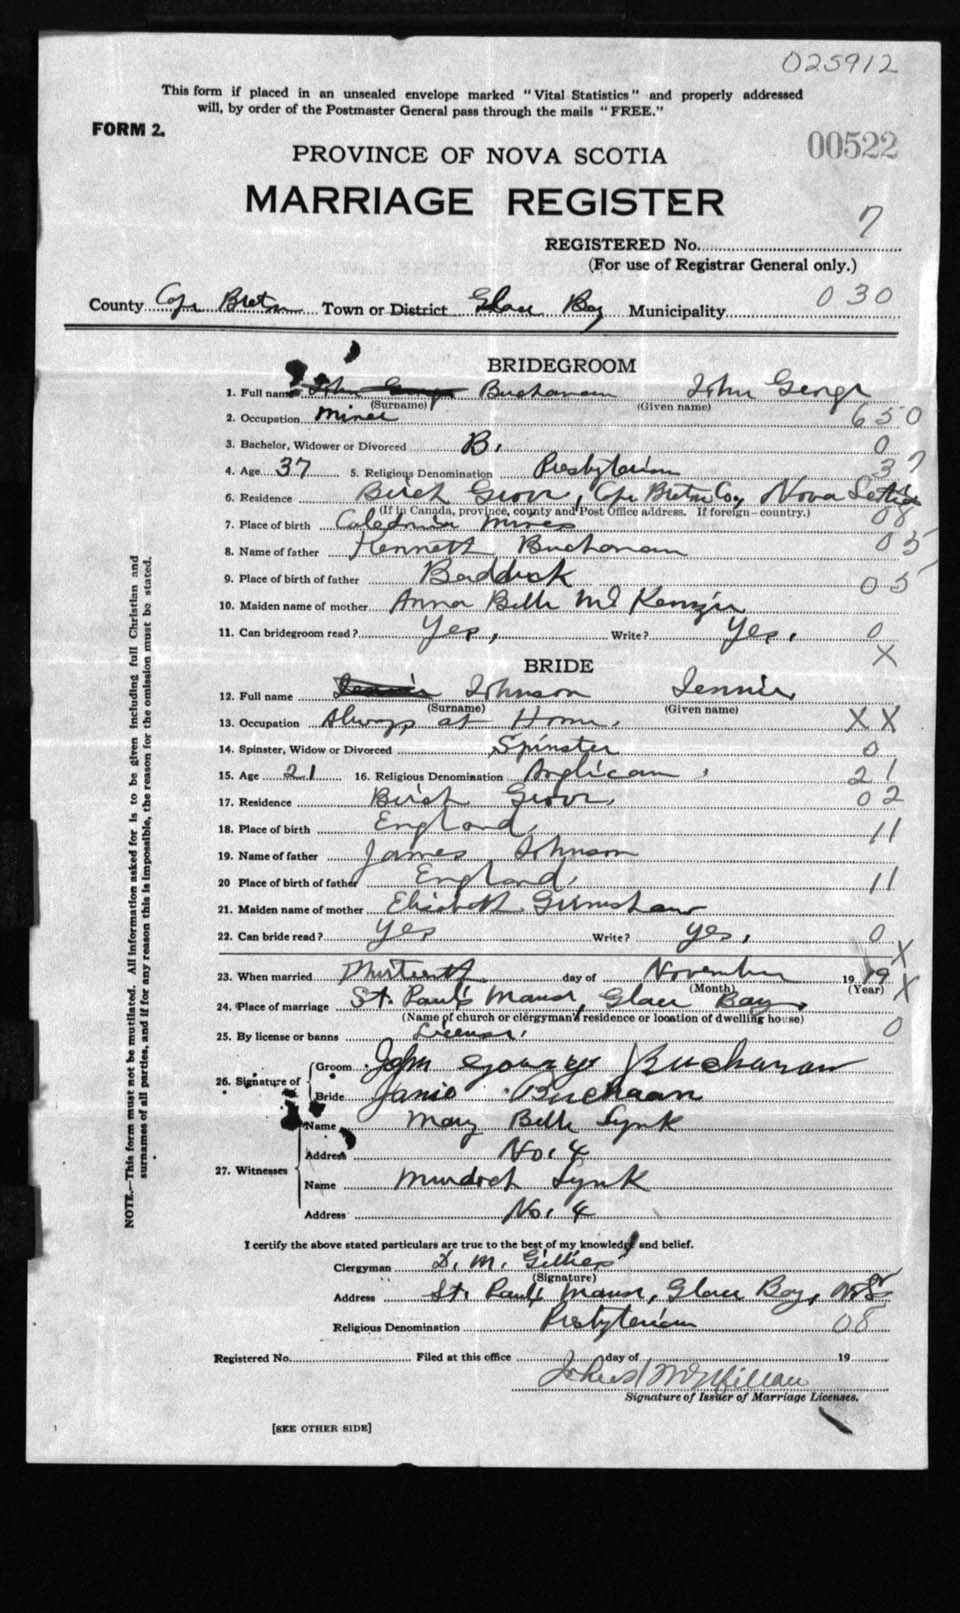 025912
This form if placed in an unsealed envelope marked "Vital Statistics" and properly addressed
will, by order of the Postmaster General pass through the mails "FREE."
FORM 2.
00522
PROVINCE OF NOVA SCOTIA
MARRIAGE REGISTER
7
REGISTERED No.
(For use of Registrar General only.)
County Cape Breton Town or District Glace Bay Municipality 030
BRIDEGROOM
1. Full name John George Buchanan John George
(Surname) (Given name)
2. Occupation Miner 650
3. Bachelor, Widower or Divorced B. 0
4. Age 37 5. Religious Denomination Presbyterian 37
6. Residence Birch Grove, Cape Breton Coy, Nova Scotia
(If in Canada, province, county and Post Office address. If foreign—country.) 08
7. Place of birth Caledonia Mines
8. Name of father Kenneth Buchanan 05
9. Place of birth of father Baddeck 05
10. Maiden name of mother Anna Belle McKenzie
11. Can bridegroom read? Yes, Write? Yes. 0
X
BRIDE
12. Full name Jennie Johnson Jennie
(Surname) (Given name)
13. Occupation Always at Home. XX
14. Spinster, Widow or Divorced Spinster 0
15. Age 21 16. Religious Denomination Anglican 21
17. Residence Birch Grove, 02
18. Place of birth England, 11
19. Name of father James Johnson
20 Place of birth of father England, 11
21. Maiden name of mother Elizabeth Grimshaw
22. Can bride read? Yes Write? Yes. 0
X
23. When married Thirteenth day of November 1919 X
(Month) (Year)
24. Place of marriage St. Paul's Manse, Glace Bay,
(Name of church or clergyman's residence or location of dwelling house) 0
25. By license or banns License.
26. Signature of Groom John George Buchanan
Bride Janie Buchaan
27. Witnesses Name Mary Belle Lynk
Address No. 4
Name Murdoch Lynk
Address No. 4
I certify the above stated particulars are true to the best of my knowledge and belief.
Clergyman D. M. Gillies
(Signature)
Address St. Paul's Manse, Glace Bay, N.S.
Religious Denomination Presbyterian 08
Registered No. Filed at this office day of 19
McMillan
Signature of Issuer of Marriage Licenses.
[SEE OTHER SIDE]
NOTE.—This form must not be mutilated. All information asked for is to be given including full Christian and
surnames of all parties, and if for any reason this is impossible, the reason for the omission must be stated.